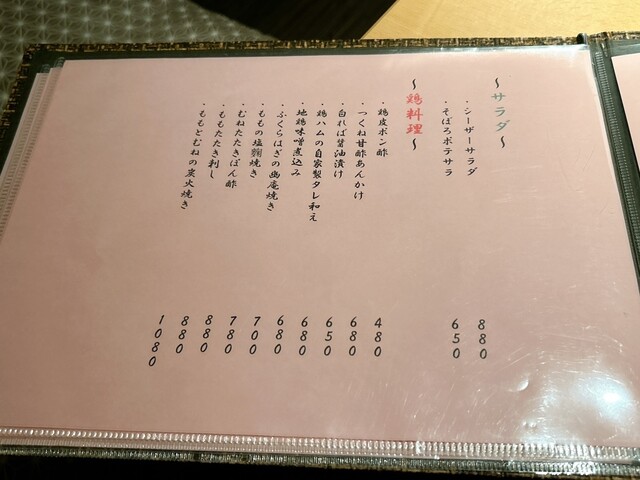 ~サラダ~
・シーザーサラダ 880
・そぼろポテサラ 650
~鶏料理~
・鶏皮ポン酢 480
・つくね甘酢あんかけ 680
・白れば醤油漬け 650
・鶏ハムの自家製タレ和え 680
・地鶏味噌煮込み 680
・ふくらはぎの幽庵焼き 700
・ももの塩麹焼き 780
・むねたたきぽん酢 880
・ももたたき刺し 880
・ももとむねの炭火焼き 1080